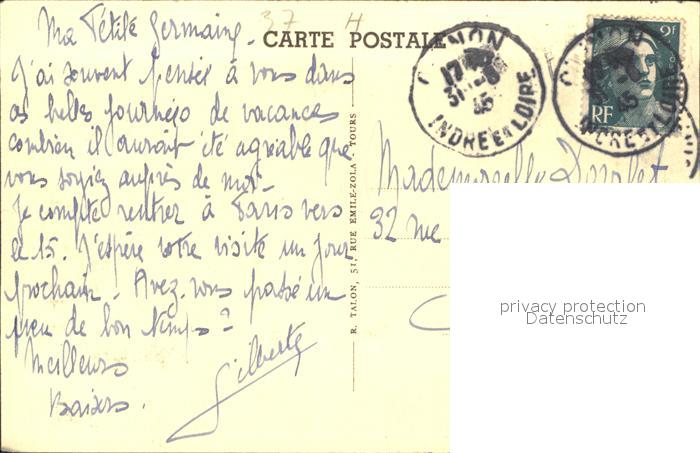 37 H
CARTE POSTALE
Ma Petite Germaine -
J'ai souvent pensé à vous dans
ces belles journées de vacances
combien il aurait été agréable que
vous soyiez auprès de moi -
Je compte rentrer à Paris vers
le 15. J'espère votre visite un jour
prochain. Avez-vous passé un
peu de bon temps ?
Meilleurs
Baisers.
Gilberte
R. TALON, 51, RUE EMILE-ZOLA - TOURS -
CHINON
17
31 -8
45
INDRE ET LOIRE
CHINON
45
INDRE ET LOIRE
2F
RF
Mademoiselle
32 rue
privacy protection
Datenschutz